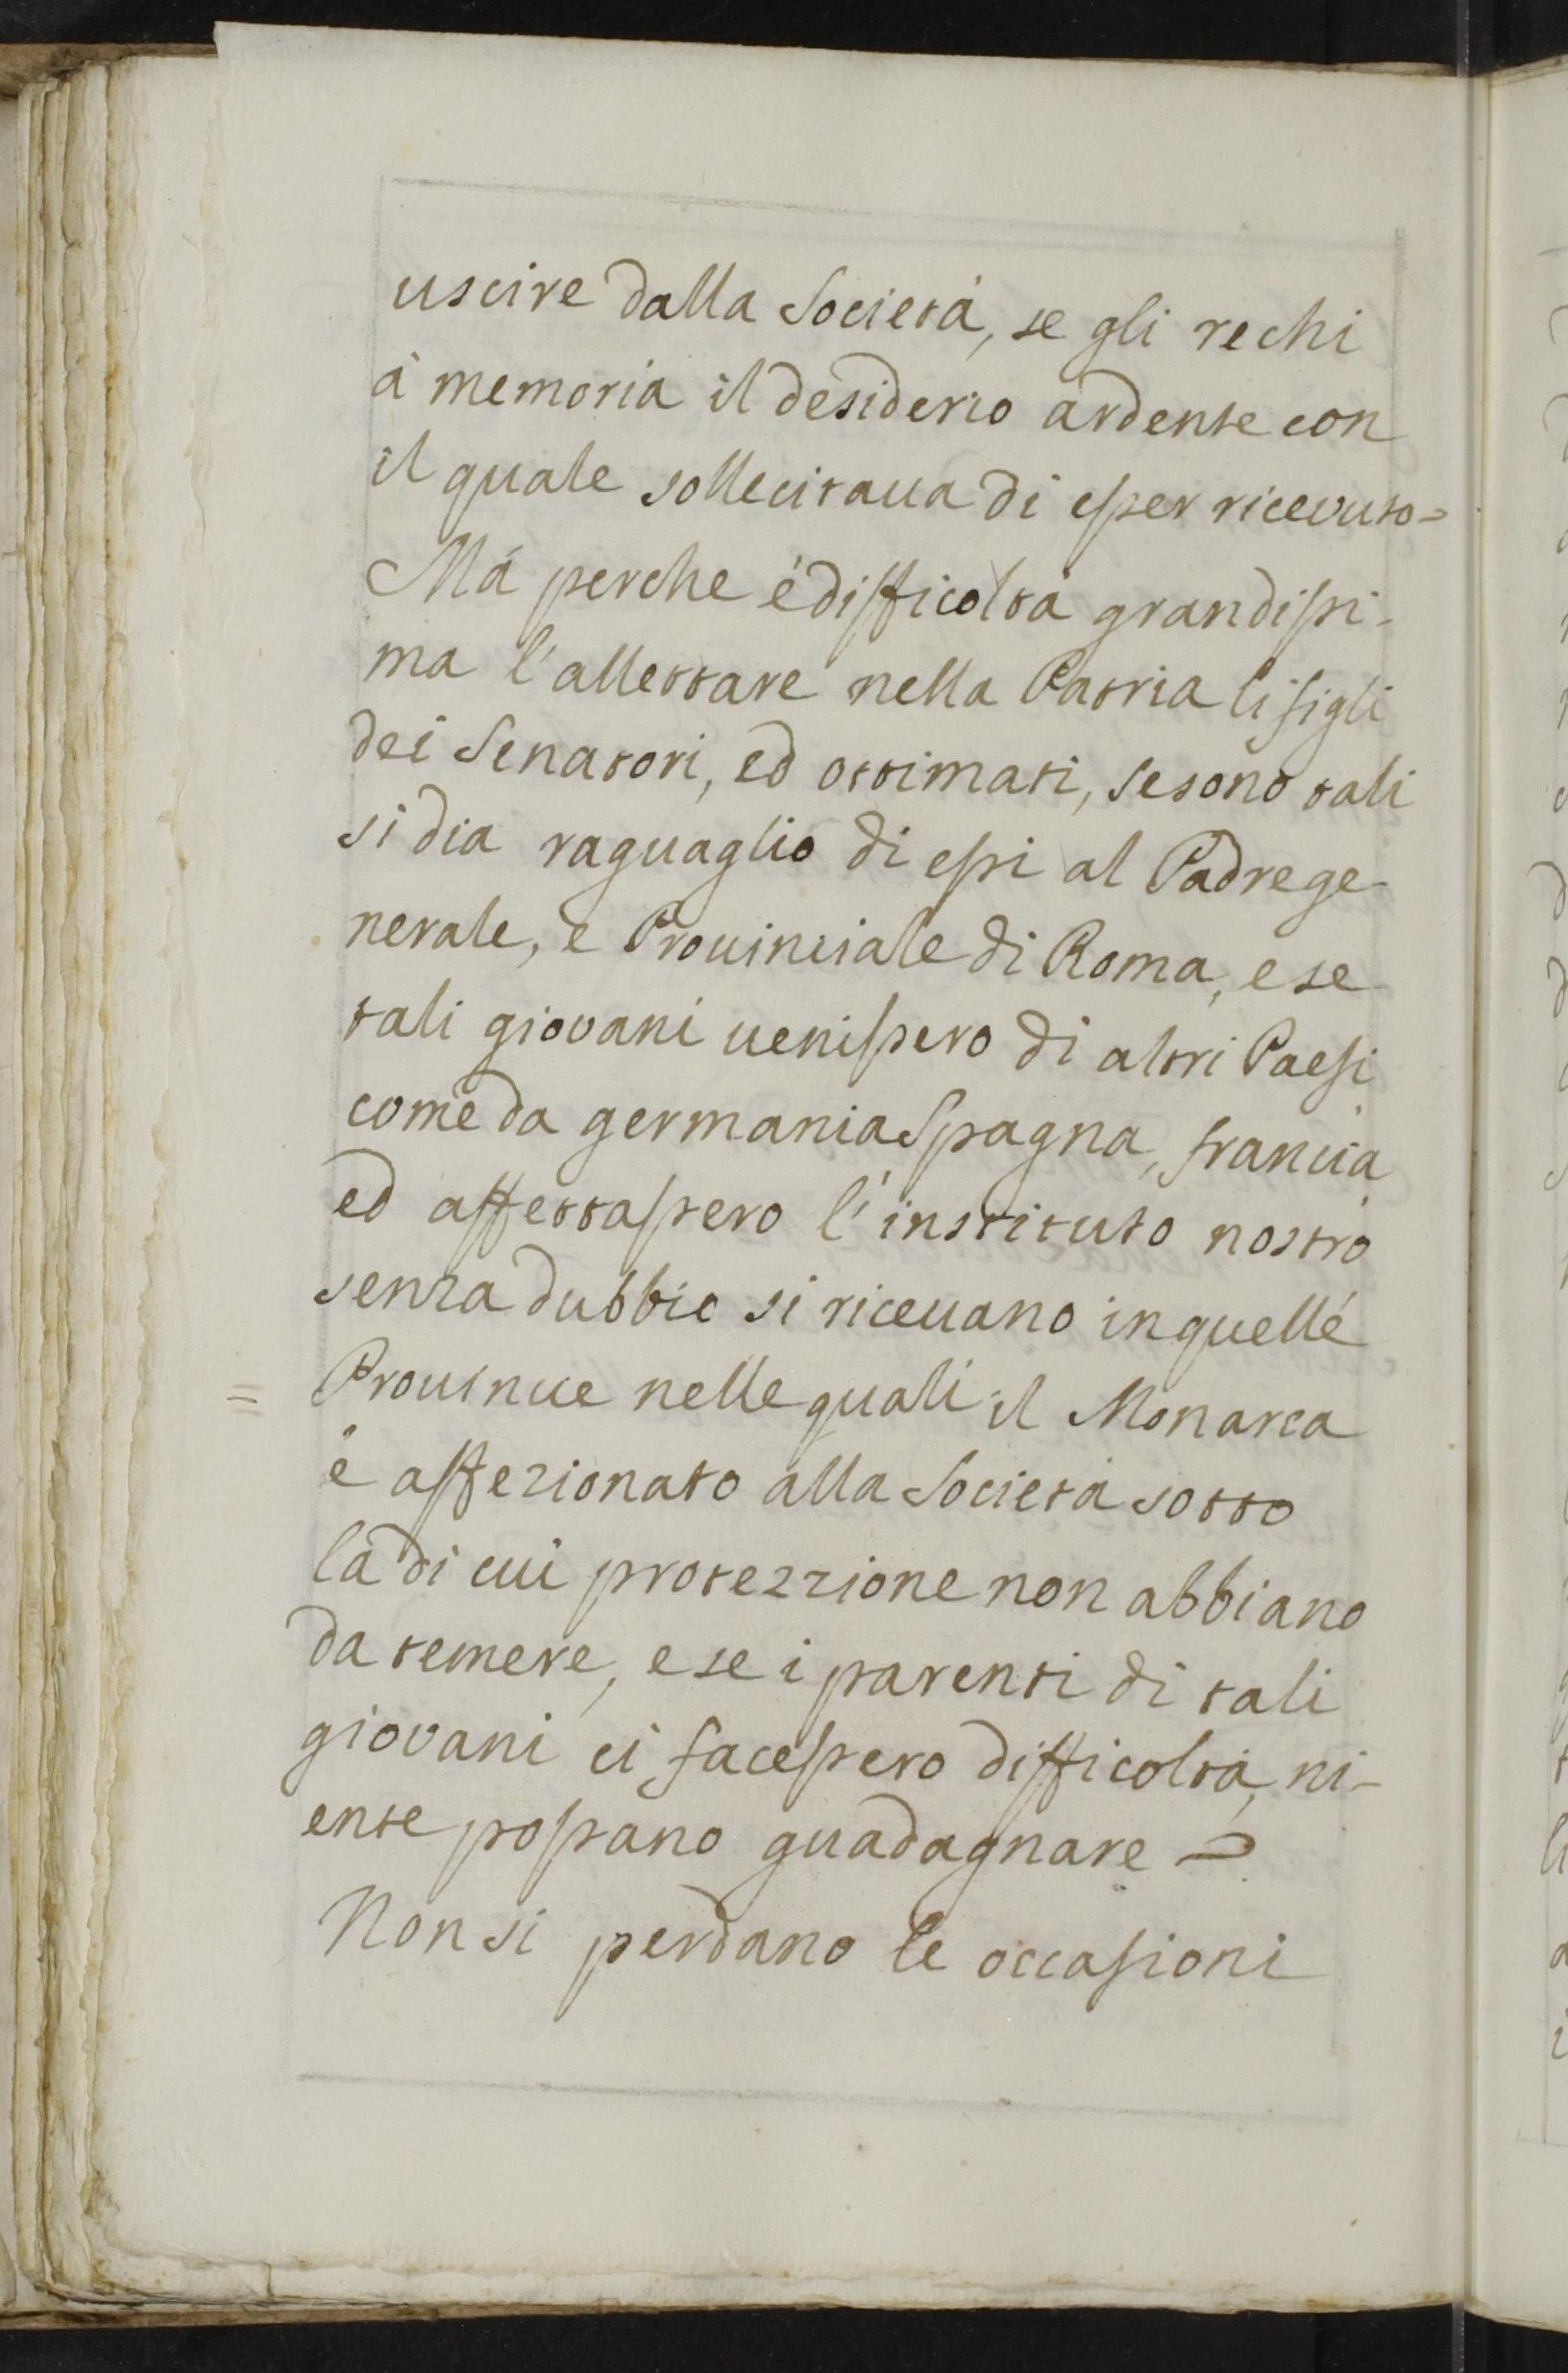 uscire dalla Società, se gli rechi
à memoria il desiderio ardente con
il quale sollecitaua di esser ricevuto=
Mà perche è difficoltà grandissi-
ma l'allettare nella Patria li figli
dei Senatori, ed ottimati, se sono tali
si dia raguaglio di essi al Padre ge-
nerale, e Prouinciale di Roma, e se
tali giovani uenissero di altri Paesi
come da germania Spagna, francia
ed affettassero l'instituto nostro
senza dubbio si riceuano in quelle
= Prouincie nelle quali il Monarca
è affezionato alla Società sotto
la di cui protezzione non abbiano
da temere, e se i parenti di tali
giovani ci facessero difficoltà, ni-
ente possano guadagnare =
Non si perdano le occasioni